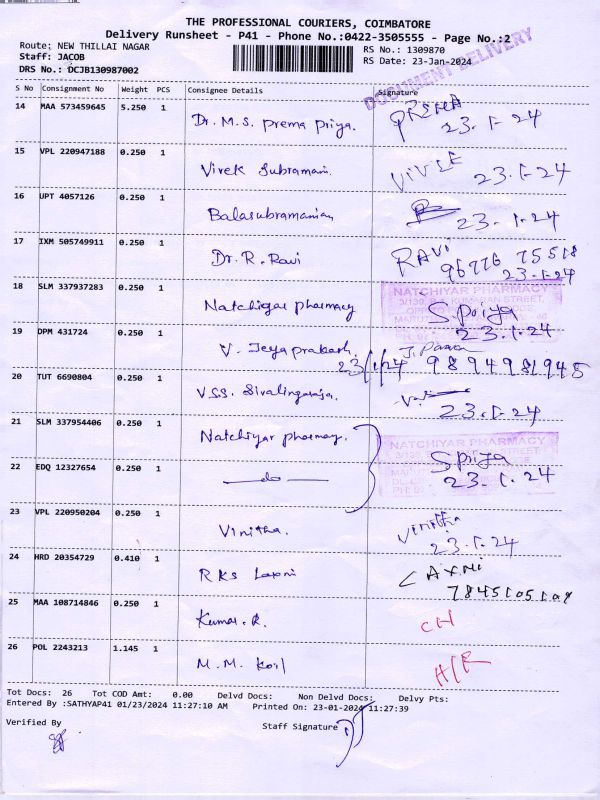 THE PROFESSIONAL COURIERS, COIMBATORE
Delivery Runsheet - P41 - Phone No.:0422-3505555 - Page No.:2
Route: NEW THILLAI NAGAR RS No.: 1309870
Staff: JACOB RS Date: 23-Jan-2024
DRS No.: DCJB130987002
DOCUMENT DELIVERY
S No Consignment No Weight PCS Consignee Details Signature
14 MAA 573459645 5.250 1 Dr. M.S. Prema Priya. PREMA 23.1-24
15 VPL 220947188 0.250 1 Vivek Subramani. 23.1-24
16 UPT 4057126 0.250 1 Balasubramanian 23.1-24
17 IXM 505749911 0.250 1 Dr. R. Ravi RAVi 96776 75518
23-1-24
NATCHIYAR PHARMACY
18 SLM 337937283 0.250 1 Natchiyar Pharmacy S priya 23.1.24
19 DPM 431724 0.250 1 V. Jeyaprakash. 23/1/24 9894981945
20 TUT 6690804 0.250 1 V.S.S. Sivalingaraja. 23.1.24
21 SLM 337954406 0.250 1 Natchiyar pharmacy.
NATCHIYAR PHARMACY
22 EDQ 12327654 0.250 1 do S priya 23.1.24
23 VPL 220950204 0.250 1 Vinitha. Vinitha 23.1.24
24 HRD 20354729 0.410 1 RKS Laxmi LAXMI
25 MAA 108714846 0.250 1 Kumar. R. CH
26 POL 2243213 1.145 1 M.M. Koil H/R
Tot Docs: 26 Tot COD Amt: 0.00 Delvd Docs: Non Delvd Docs: Delvy Pts:
Entered By :SATHYAP41 01/23/2024 11:27:10 AM Printed On: 23-01-2024 11:27:39
Verified By Staff Signature